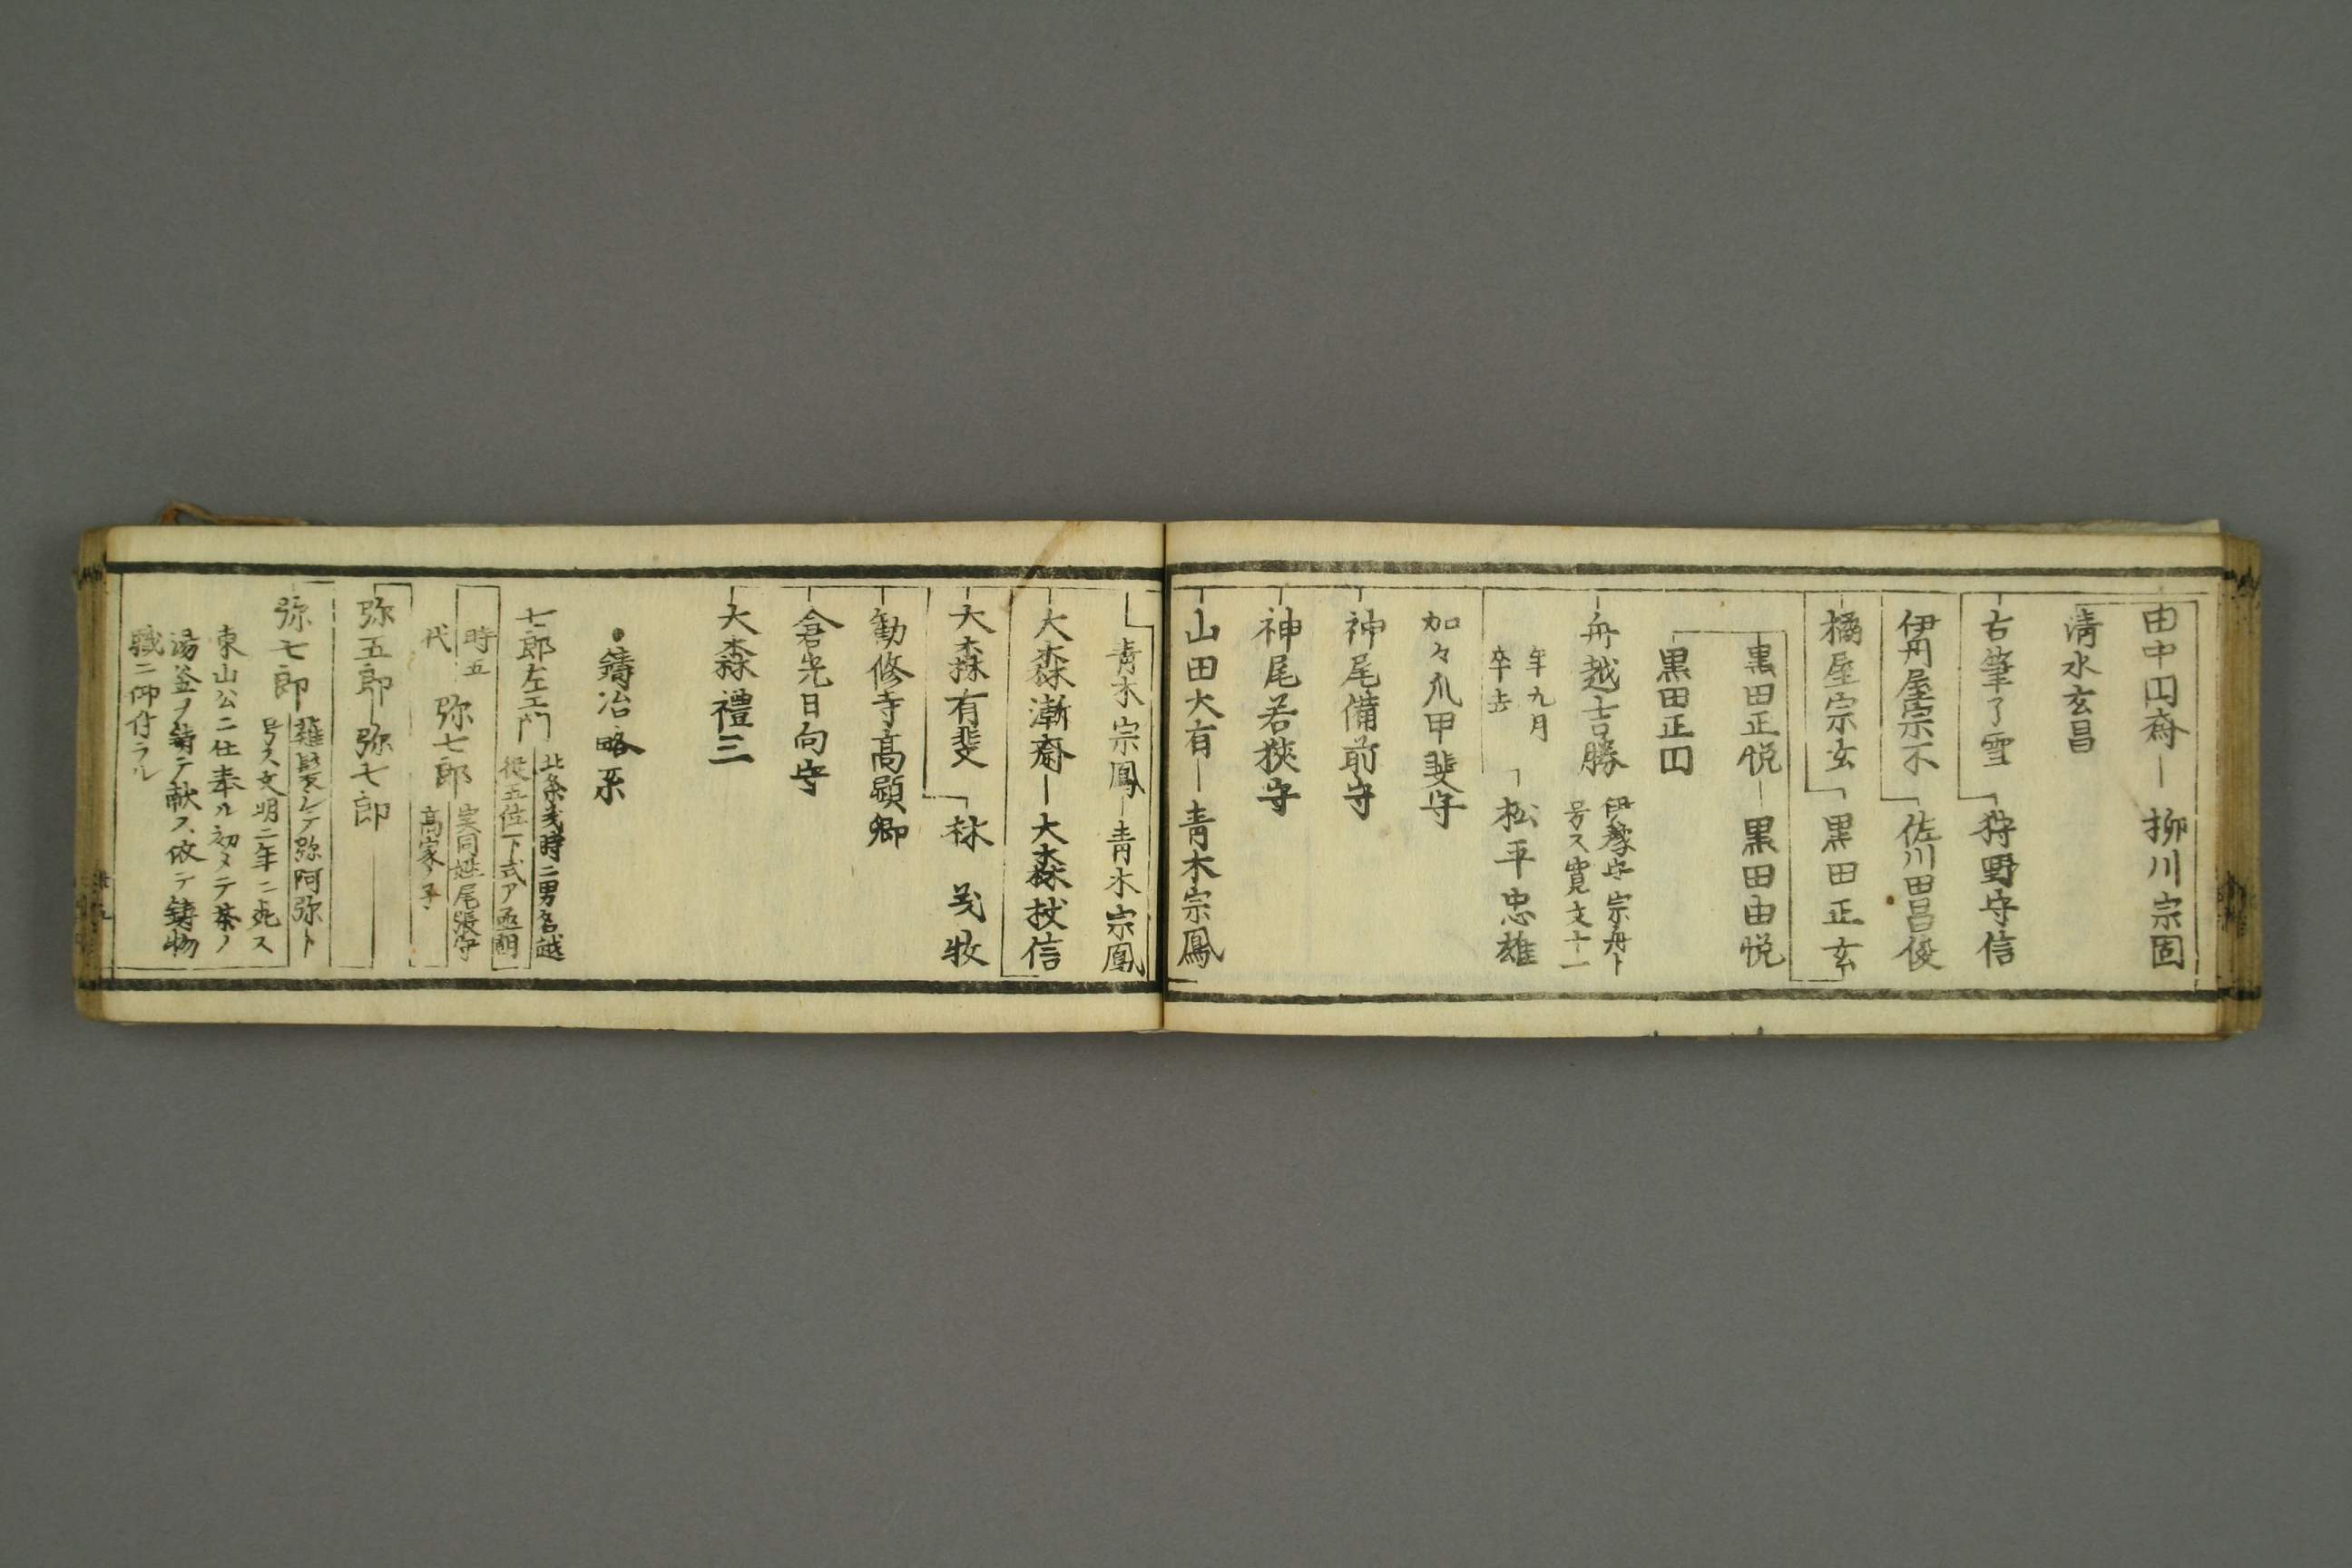 田中円斎 柳川宗固
清水玄昌
古筆了雪 狩野守信
伊丹屋宗不 佐川田昌俊
橘屋宗玄 黒田正玄
黒田正悦 黒田由悦
黒田正円
舟越吉勝 伊豫守宗舟ト
号ス寛文十一
年九月
卒去 松平忠雄
加々爪甲斐守
神尾備前守
神尾若狭守
山田大有 青木宗鳳
青木宗鳳 青木宗鳳
大森漸斎 大森杖信
大森有斐 林
勧修寺高顕卿
倉光日向守
大森禮三
鋳冶略系
七郎左エ門 北条義時二男名越
従五位下式ア丞朝
時五
代 弥七郎 実同姓尾張守
高家ノ子
弥五郎 弥七郎
弥七郎 薙髪シテ弥阿弥ト
号ス文明二年ニ死ス
東山公ニ仕奉ル初メテ茶ノ
湯釜ヲ鋳テ献ス依テ鋳物
職ニ仰付ラル